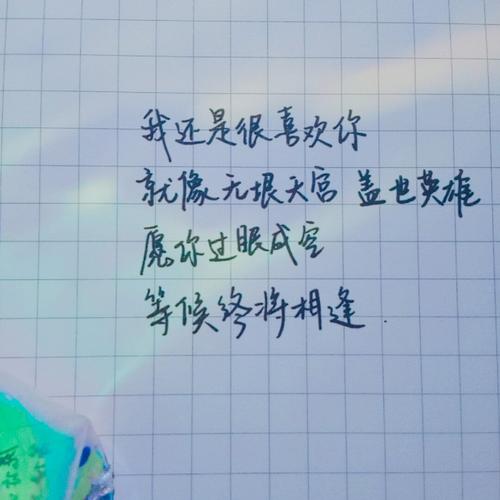 我还是很喜欢你
就像无垠天宫 盖世英雄
愿你过眼成空
等候终将相逢.